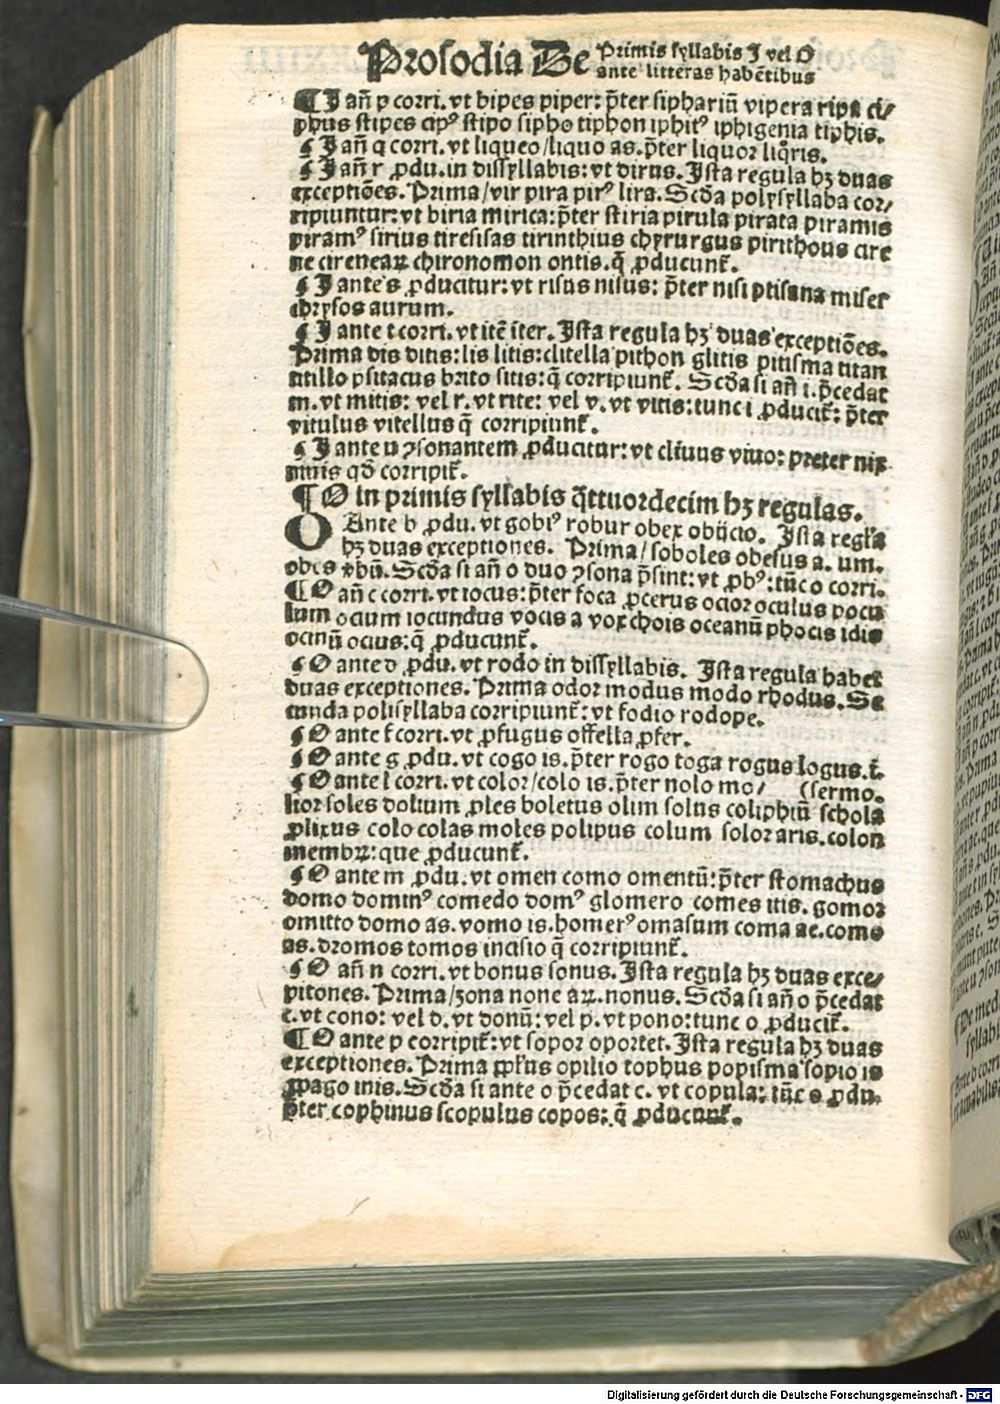 Prosodia De Primis syllabis I vel O
ante litteras habētibus
¶ I añ p corri. vt bipes piper: p̄ter siphariū vipera ripa ci/
phus stipes cipꝰ stipo sipho tiphon iphitꝰ iphigenia tiphis.
¶ I añ q corri. vt liqueo/liquo as. p̄ter liquor liq̄ris.
¶ I añ r ꝓdu. in dissyllabis: vt dirus. Ista regula hꝫ duas
exceptiōes. Prima/vir pira pirꝰ lira. Scd̄a polysyllaba cor/
ripiuntur: vt biria mirica: p̄ter stiria pirula pirata piramis
piramꝰ sirius tiresisas tirinthius chyrurgus pirithous cire
ne cireneaꝝ chironomon ontis. q̄ ꝓducunt̄.
¶ I ante s ꝓducitur: vt risus nisus: p̄ter nisi ptisana miser
chrysos aurum.
¶ I ante t corri. vt itē iter. Ista regula hꝫ duas exceptiōes.
Prima dis ditis: lis litis: clitella pithon glitis pitisma titan
titillo psitacus brito sitis: q̄ corripiunt̄. Scd̄a si añ i. p̄cedat
m. vt mitis: vel r. vt rite: vel v. vt vitis: tunc i ꝓducit̄: p̄ter
vitulus vitellus q̄ corripiunt̄.
¶ I ante u ꝯsonantem ꝓducitur: vt cliuus viuo: preter nix
niuis qd̄ corripit̄.
¶ O in primis syllabis q̄ttuordecim hꝫ regulas.
O Ante b ꝓdu. vt gobiꝰ robur obex obijcio. Ista regl̄a
hꝫ duas exceptiones. Prima/soboles obesus a. um.
obes vbū. Scd̄a si añ o duo ꝯsona p̄sint: vt ꝓbꝰ: tūc o corri.
¶ O añ c corri. vt iocus: p̄ter foca ꝓcerus ocior oculus pocu
lum ocium iocundus vocis a vox chois oceanū phocis idis
ocinū ocius: q̄ ꝓducunt̄.
¶ O ante d ꝓdu. vt rodo in dissyllabis. Ista regula habet
duas exceptiones. Prima odor modus modo rhodus. Se
cunda polisyllaba corripiunt̄: vt fodio rodope.
¶ O ante f corri. vt ꝓfugus offella ꝓfer.
¶ O ante g ꝓdu. vt cogo is. p̄ter rogo toga rogus logus. i.
¶ O ante l corri. vt color/colo is. p̄ter nolo mo/ (sermo.
lior soles dolium ꝓles boletus olim solus coliphiū schola
ꝓlixus colo colas moles polipus colum solor aris. colon
membꝝ: que ꝓducunt̄.
¶ O ante m ꝓdu. vt omen como omentū: p̄ter stomachus
domo dominꝰ comedo domꝰ glomero comes itis. gomor
omitto domo as. vomo is. homerꝰ omasum coma ae. como
as. dromos tomos incisio q̄ corripiunt̄.
¶ O añ n corri. vt bonus sonus. Ista regula hꝫ duas exce/
pitones. Prima/zona none aꝝ. nonus. Scd̄a si añ o p̄cedat
c. vt cono: vel d. vt donū: vel p. vt pono: tunc o ꝓducit̄.
¶ O ante p corripit̄: vt sopor oportet. Ista regula hꝫ duas
exceptiones. Prima opilio tophus popisma sopio is
ꝓpago inis. Scd̄a si ante o p̄cedat c. vt copula: tūc o ꝓdu.
p̄ter cophinus scopulus copos: q̄ ꝓducunt̄.
Digitalisierung gefördert durch die Deutsche Forschungsgemeinschaft - DFG